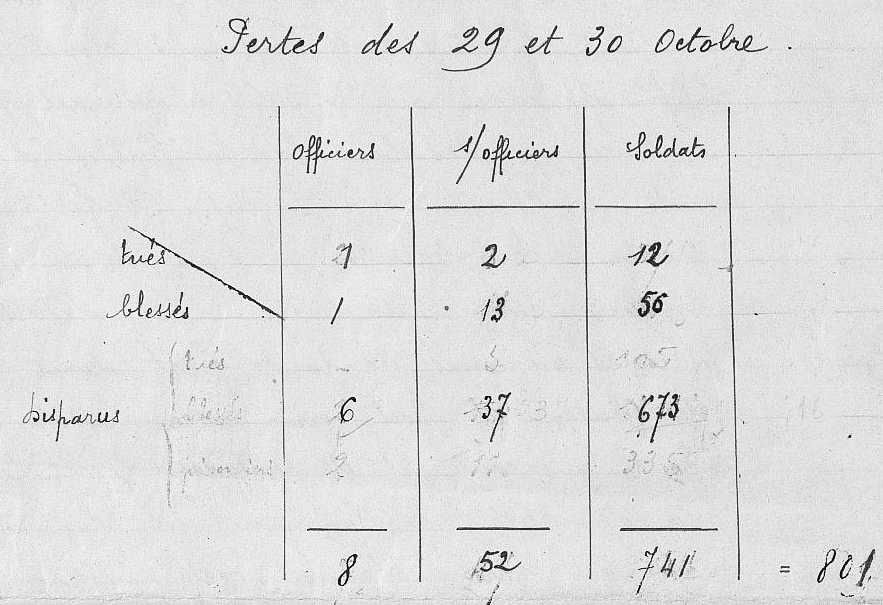 Pertes des 29 et 30 Octobre.
officiers s/officiers Soldats
tués 1 2 12
blessés 1 13 56
tués
Disparus blessés 6 37 673
prisonniers 2 335
8 52 741 = 801